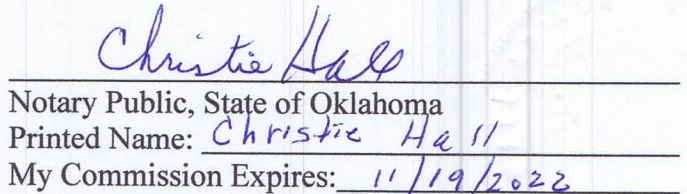 Christie Hall
Notary Public, State of Oklahoma
Printed Name: Christie Hall
My Commission Expires: 11/19/2022